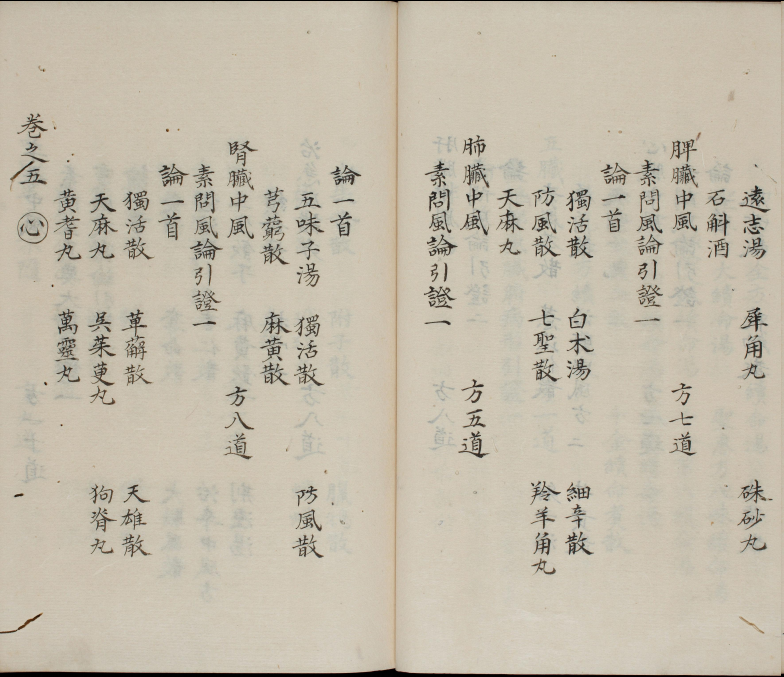 遠志湯 犀角丸 硃砂丸
石斛酒
脾臟中風 方七道
素問風論引證一
論一首
獨活散 白朮湯 細辛散
防風散 七聖散 羚羊角丸
天麻丸
肺臟中風 方五道
素問風論引證一
論一首
五味子湯 獨活散 防風散
芎藭散 麻黃散
腎臟中風 方八道
素問風論引證一
論一首
獨活散 萆薢散 天雄散
天麻丸 吳茱萸丸 狗脊丸
黃耆丸 萬靈丸
卷之五 心